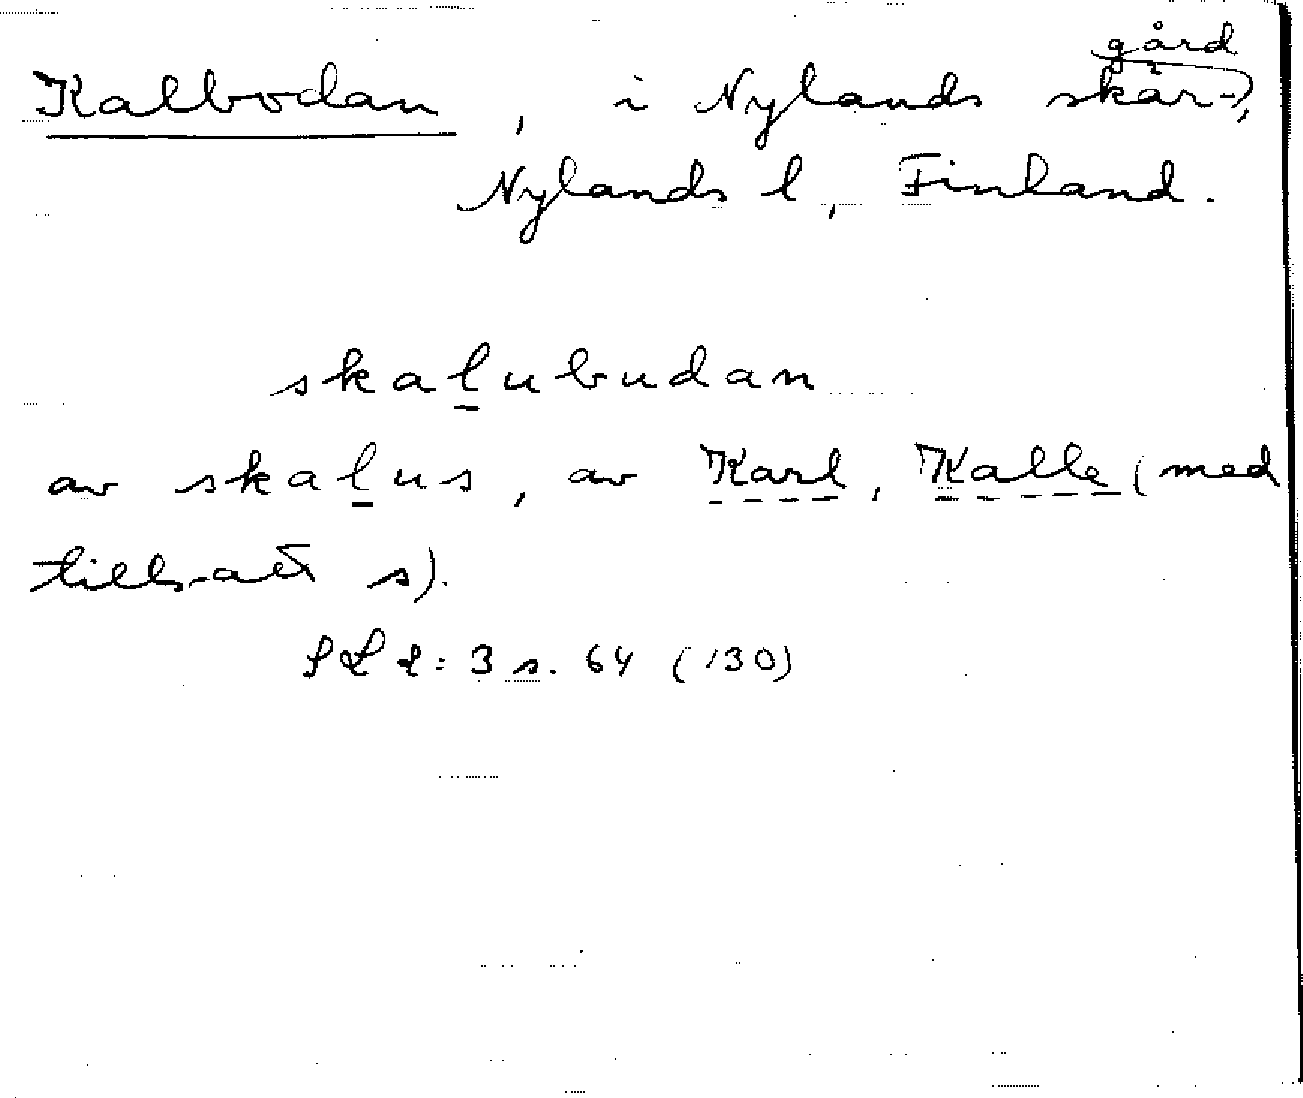 Kalbodan, i Nylands skär-
gård,
Nylands l, Finland.
skalubudan
av skalus, av Karl, Kalle (med
tillsatt s).
SLS: 3 s. 64 (130)